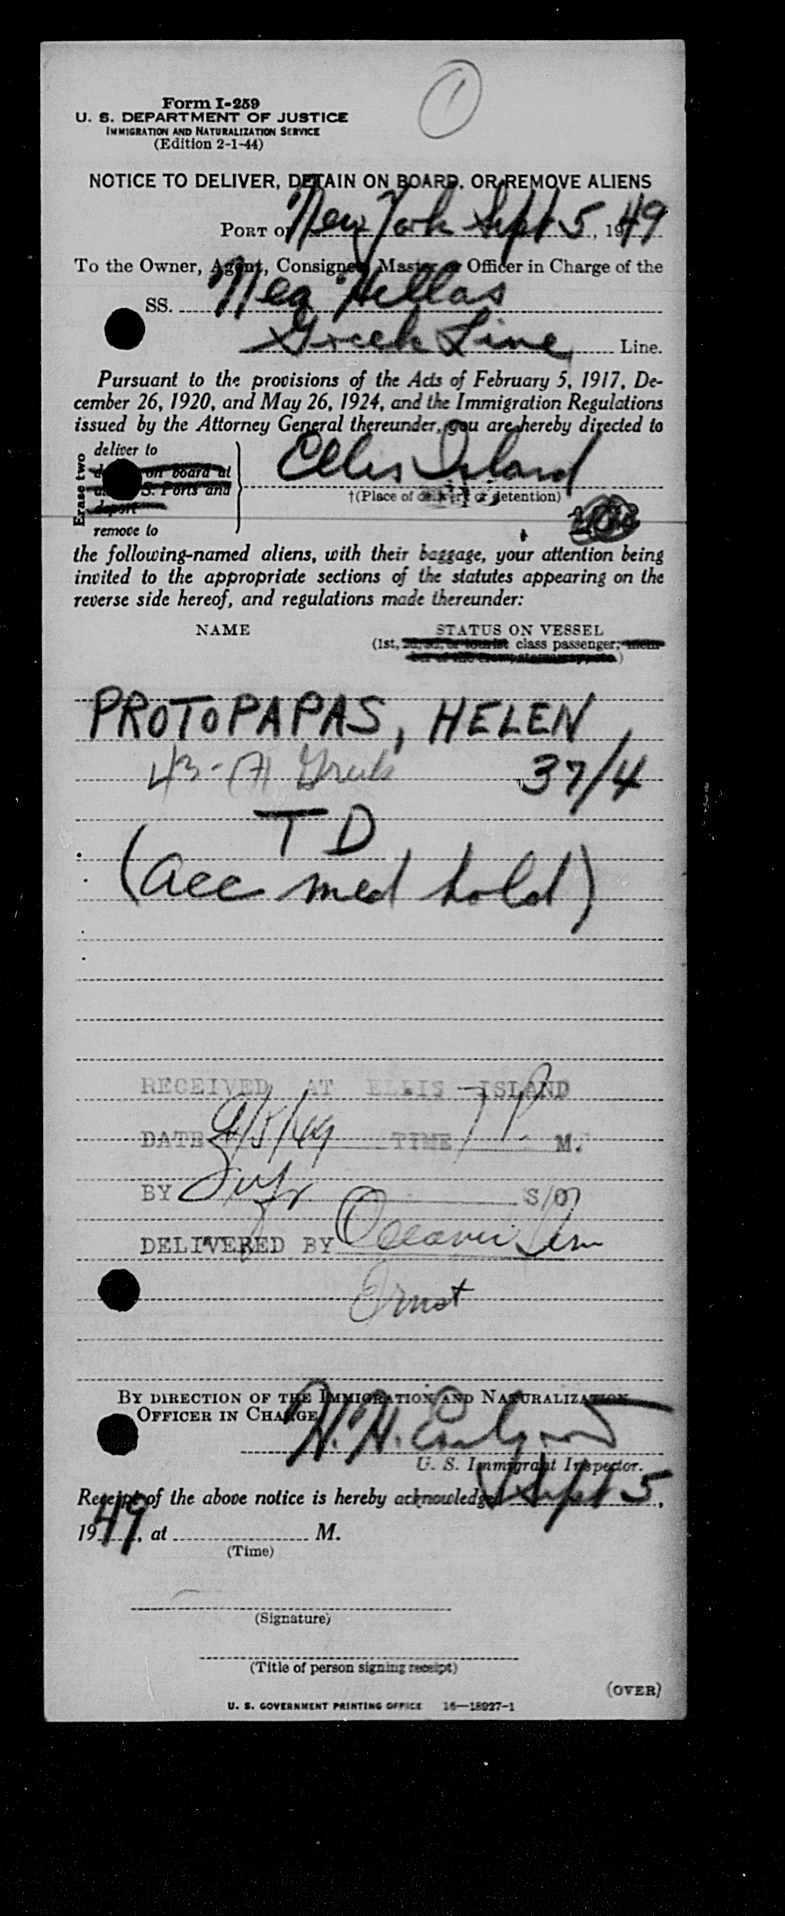 1
Form I-259
U. S. DEPARTMENT OF JUSTICE
IMMIGRATION AND NATURALIZATION SERVICE
(Edition 2-1-44)
NOTICE TO DELIVER, DETAIN ON BOARD, OR REMOVE ALIENS
PORT OF New York Sept 5, 1949
To the Owner, Agent, Consignee, Master or Officer in Charge of the
SS. Nea Hellas
Greek Line Line.
Pursuant to the provisions of the Acts of February 5, 1917, De-
cember 26, 1920, and May 26, 1924, and the Immigration Regulations
issued by the Attorney General thereunder, you are hereby directed to
Erase two
deliver to
on board at
S. Ports and
deport
remove to
Ellis Island
†(Place of delivery or detention)
the following-named aliens, with their baggage, your attention being
invited to the appropriate sections of the statutes appearing on the
reverse side hereof, and regulations made thereunder:
NAME STATUS ON VESSEL
(1st, 2d, 3d, or tourist class passenger, mem-
)
PROTOPAPAS, HELEN
43- Greek 37/4
TD
(acc med hold)
RECEIVED AT ELLIS ISLAND
DATE 9/5/49 TIME 7 P. M.
BY S/O
DELIVERED BY
BY DIRECTION OF THE IMMIGRATION AND NATURALIZATION
OFFICER IN CHARGE
H. H.
U. S. Immigrant Inspector.
Receipt of the above notice is hereby acknowledged Sept 5,
1949, at M.
(Time)
(Signature)
(Title of person signing receipt)
(OVER)
U. S. GOVERNMENT PRINTING OFFICE 16—18927-1